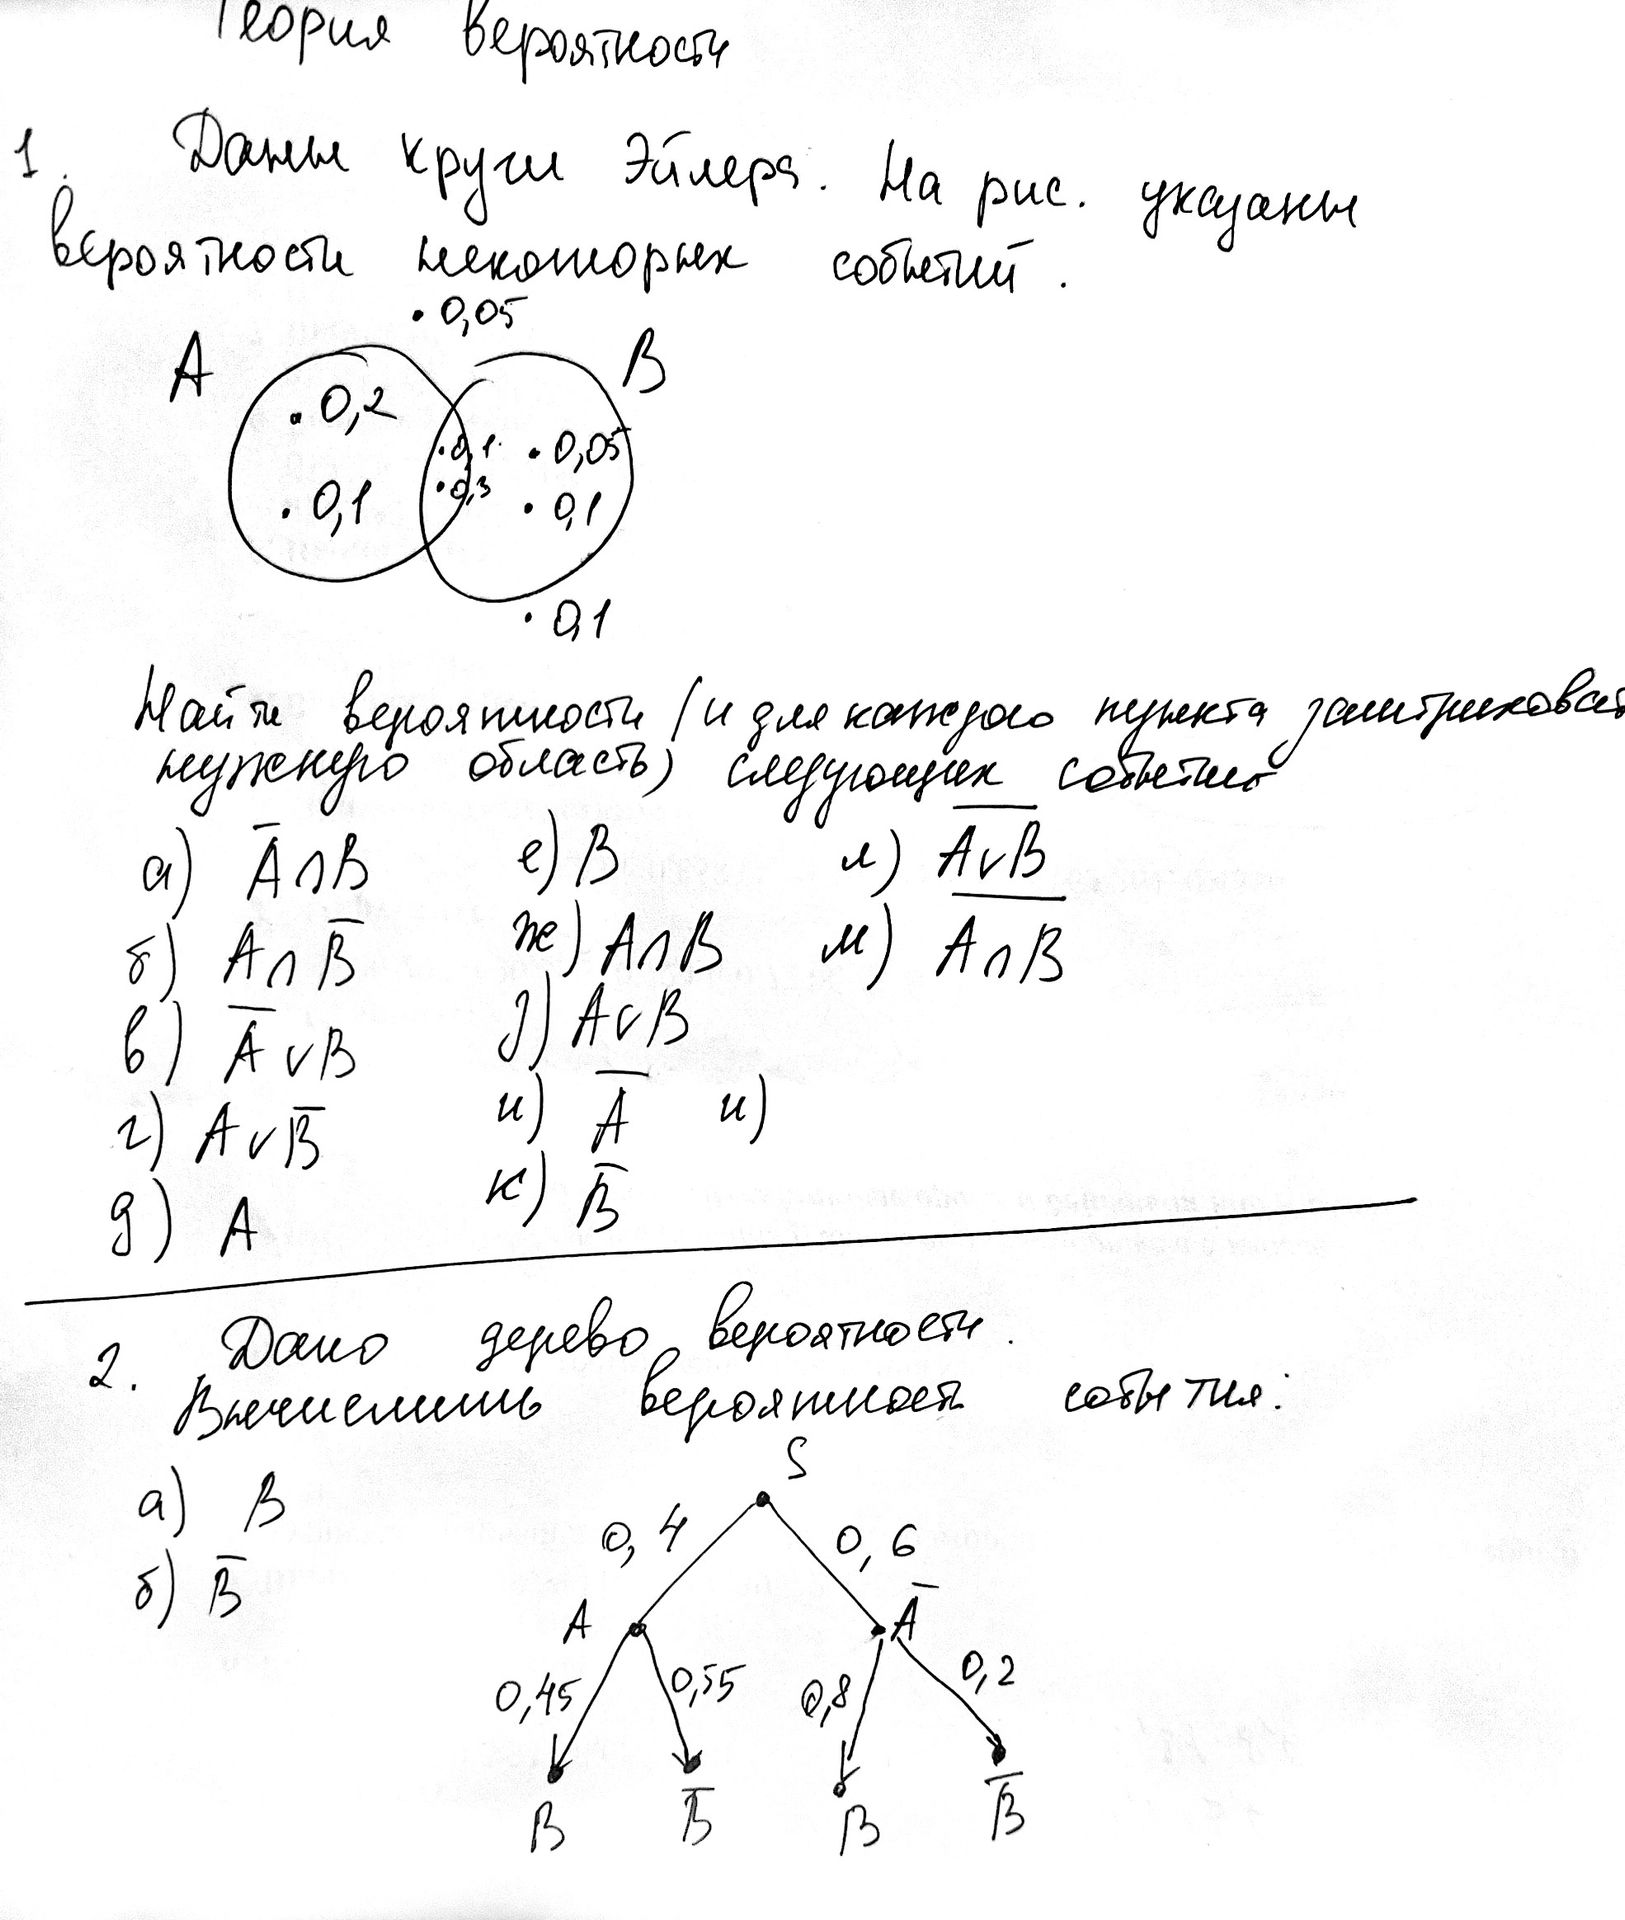 Теория вероятности
1. Даны круги Эйлера. На рис. указаны
вероятности некоторых событий.
• 0,05
A B
• 0,2
• 0,1 • 0,05
• 0,3
• 0,1 • 0,1
• 0,1
Найти вероятности (и для каждого пункта заштриховать
нужную область) следующих событий
а) A̅∩B е) B л) A̅∨̅B̅
б) A∩B̅ ж) A∩B м) A̅∩̅B̅
в) A̅∨B з) A∨B
г) A∨B̅ и) A̅ и)
д) A к) B̅
2. Дано дерево вероятности.
Вычислить вероятность события:
S
а) B
0,4 0,6
б) B̅
A A̅
0,45 0,55 0,8 0,2
B B̅ B B̅